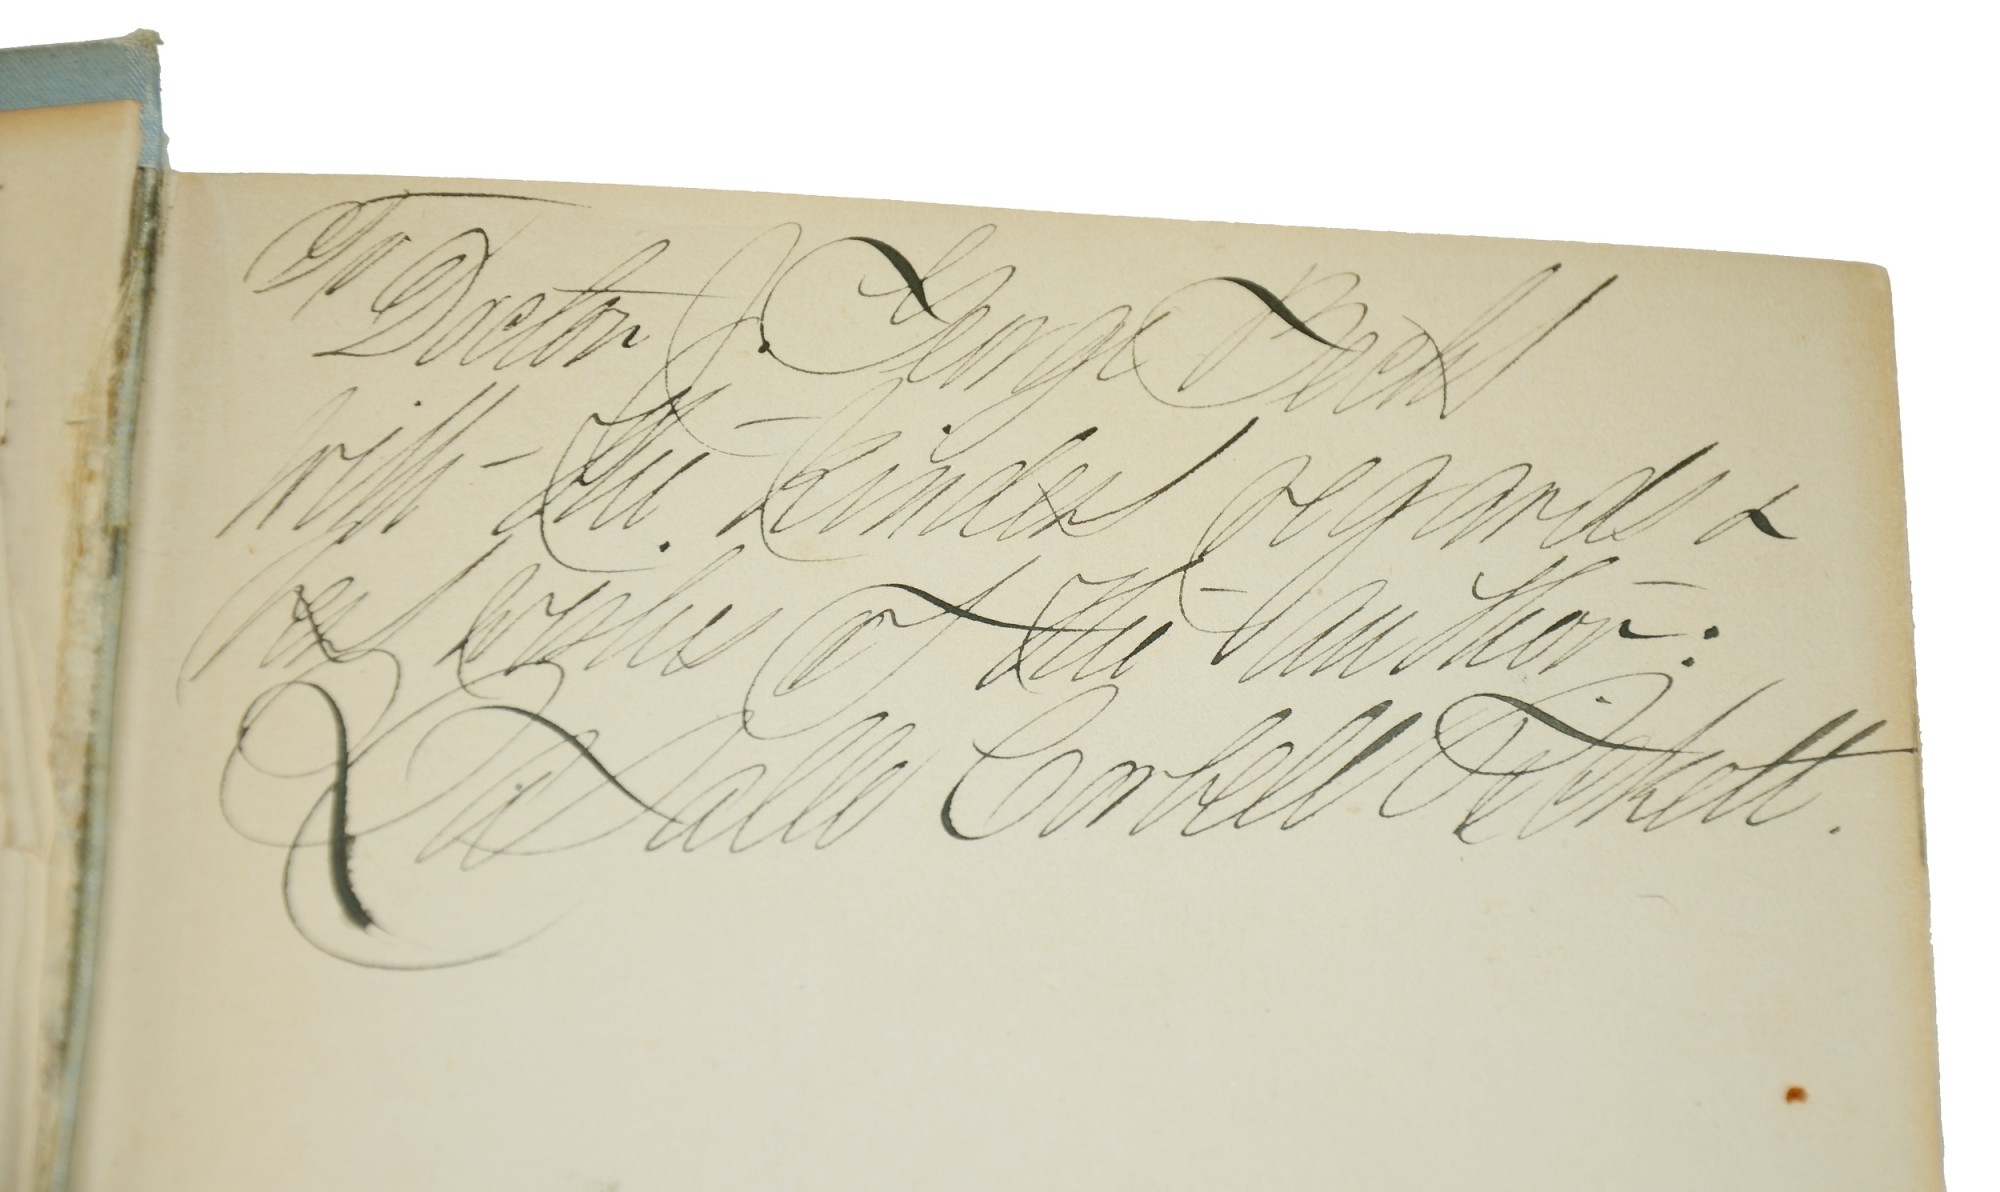 To Doctor J. George Becht
with the kindest regards &
best wishes of the author:
LaSalle Corbell Pickett.